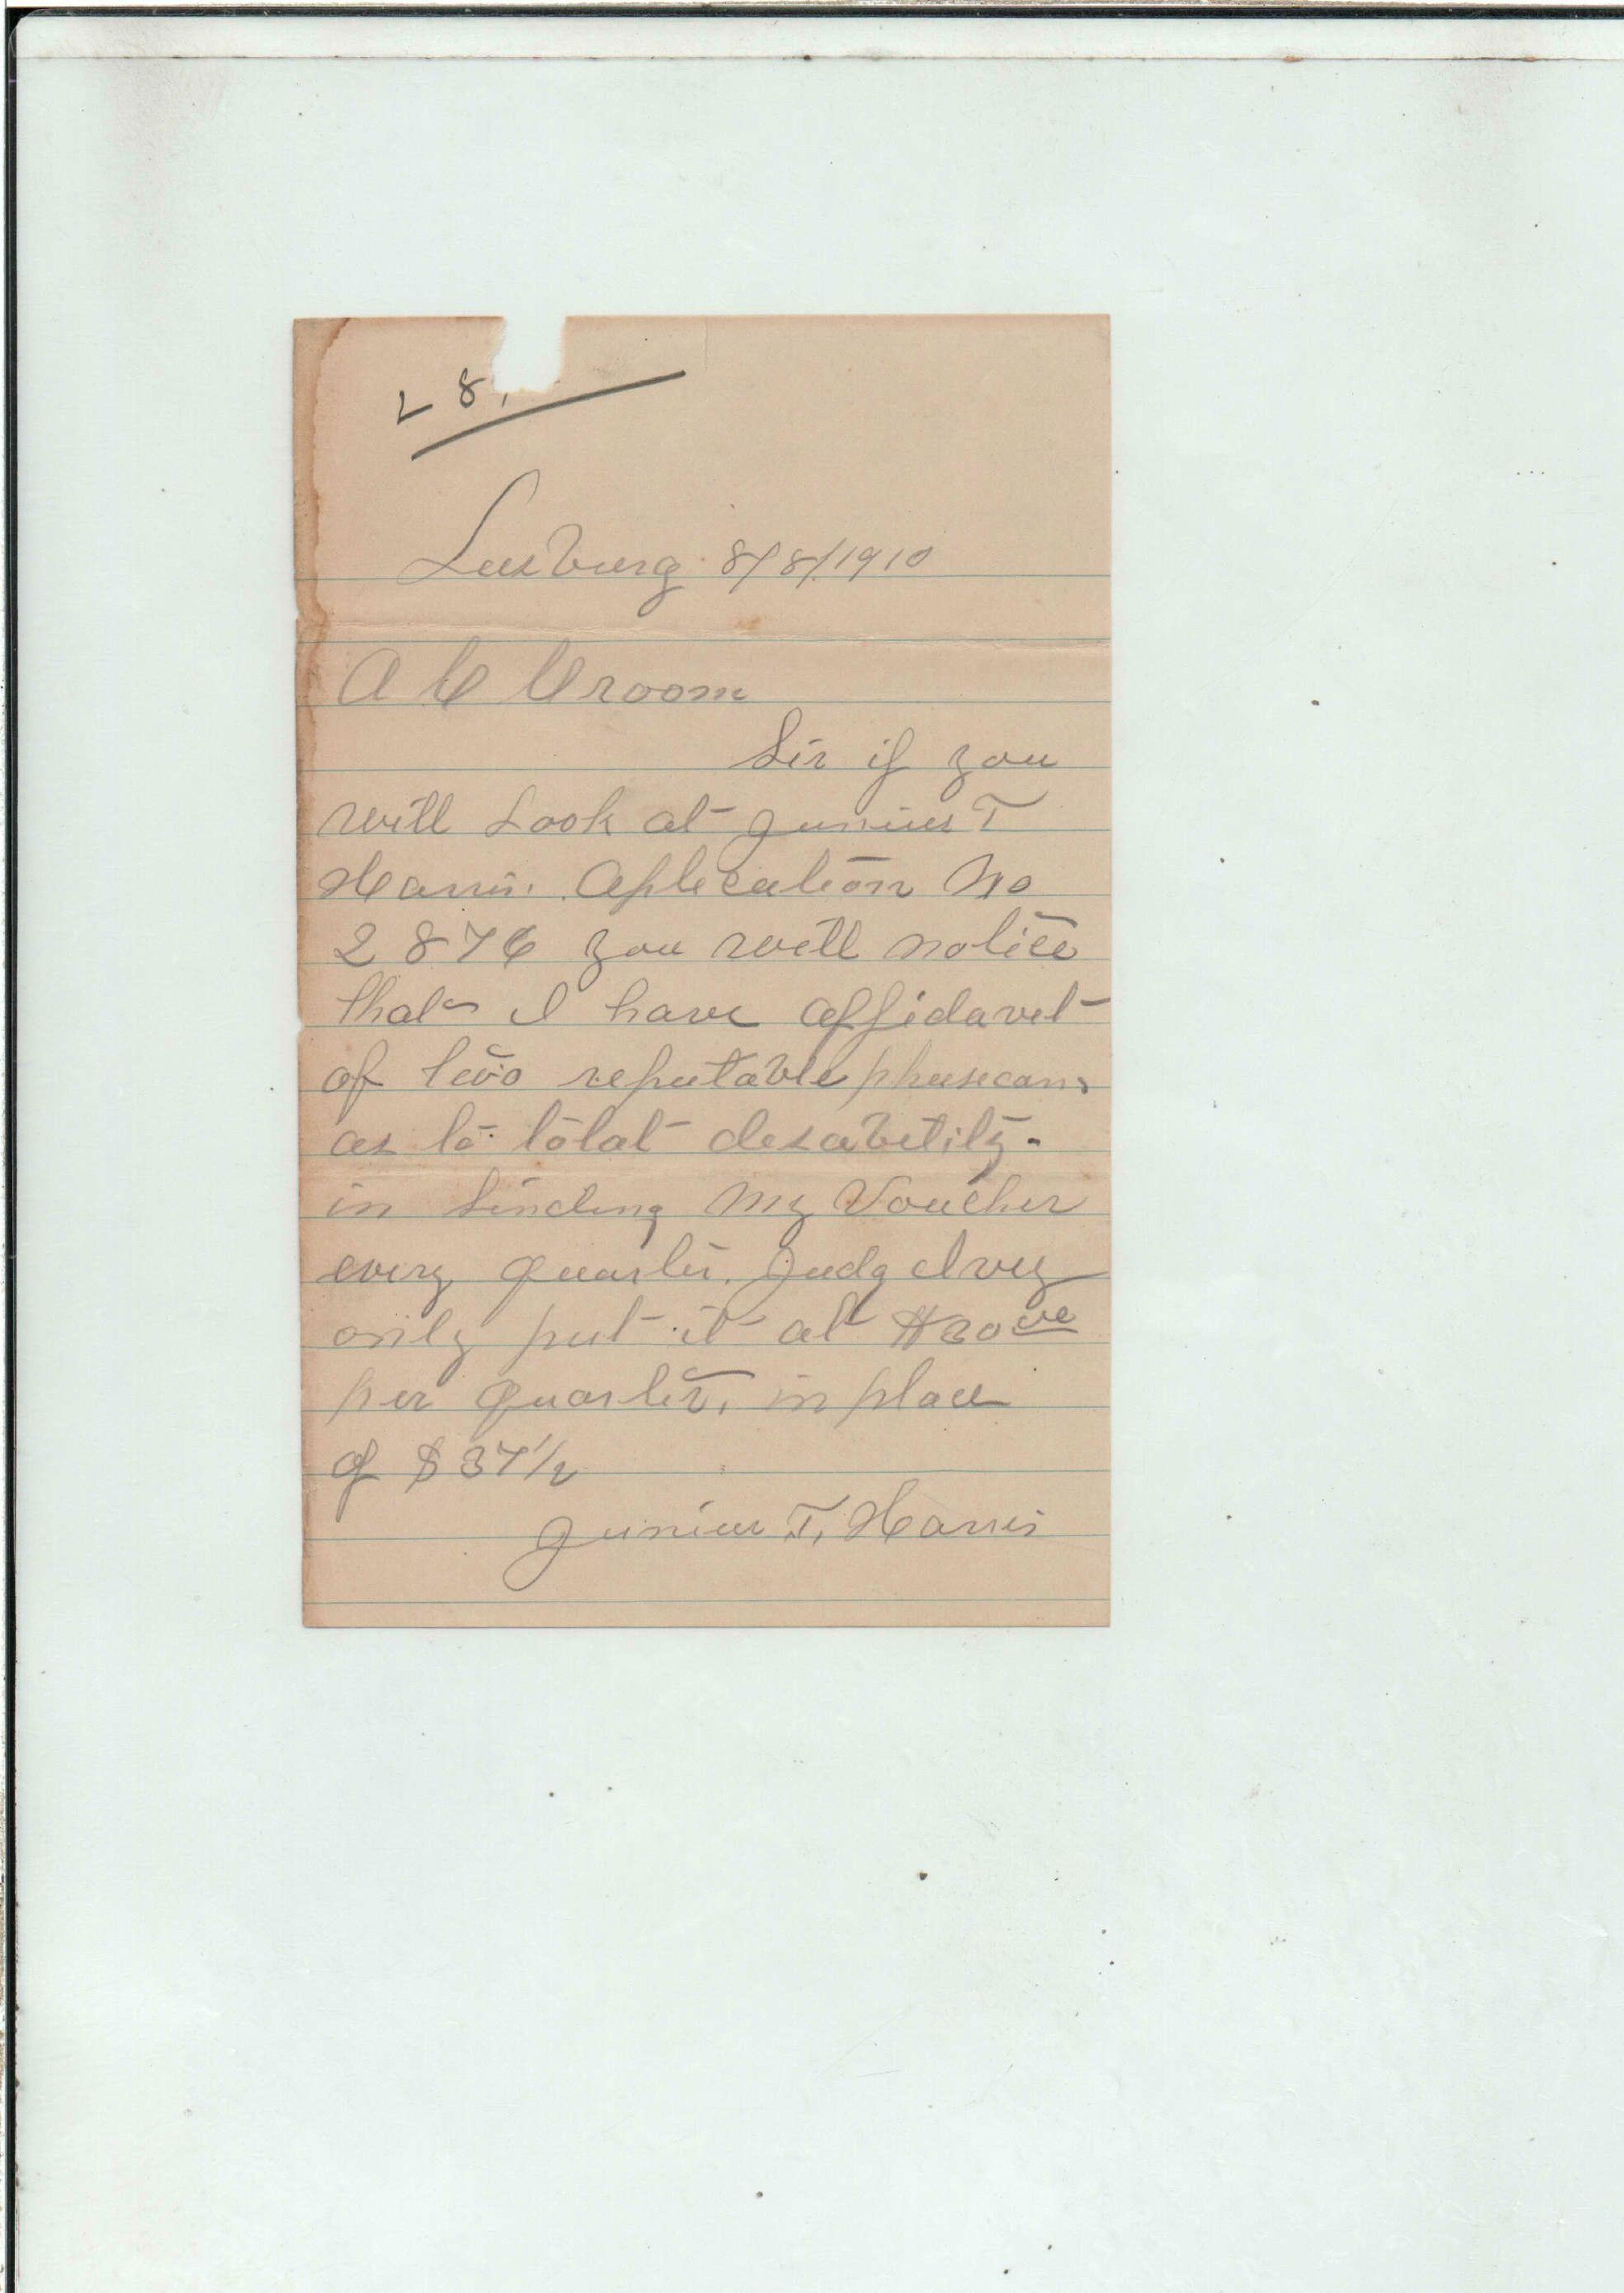 28
Leesburg 8/8/1910
A C Croom
Sir if you
will Look at Junius T
Harris. Aplication No
2876 you will notice
that I have affidavit
of two reputable phusecans
as to total desability.
in sinding My Voucher
every quarter. Judg Ivey
only put it at $30 00
per quarter, in place
of $37 1/2
Junius T. Harris